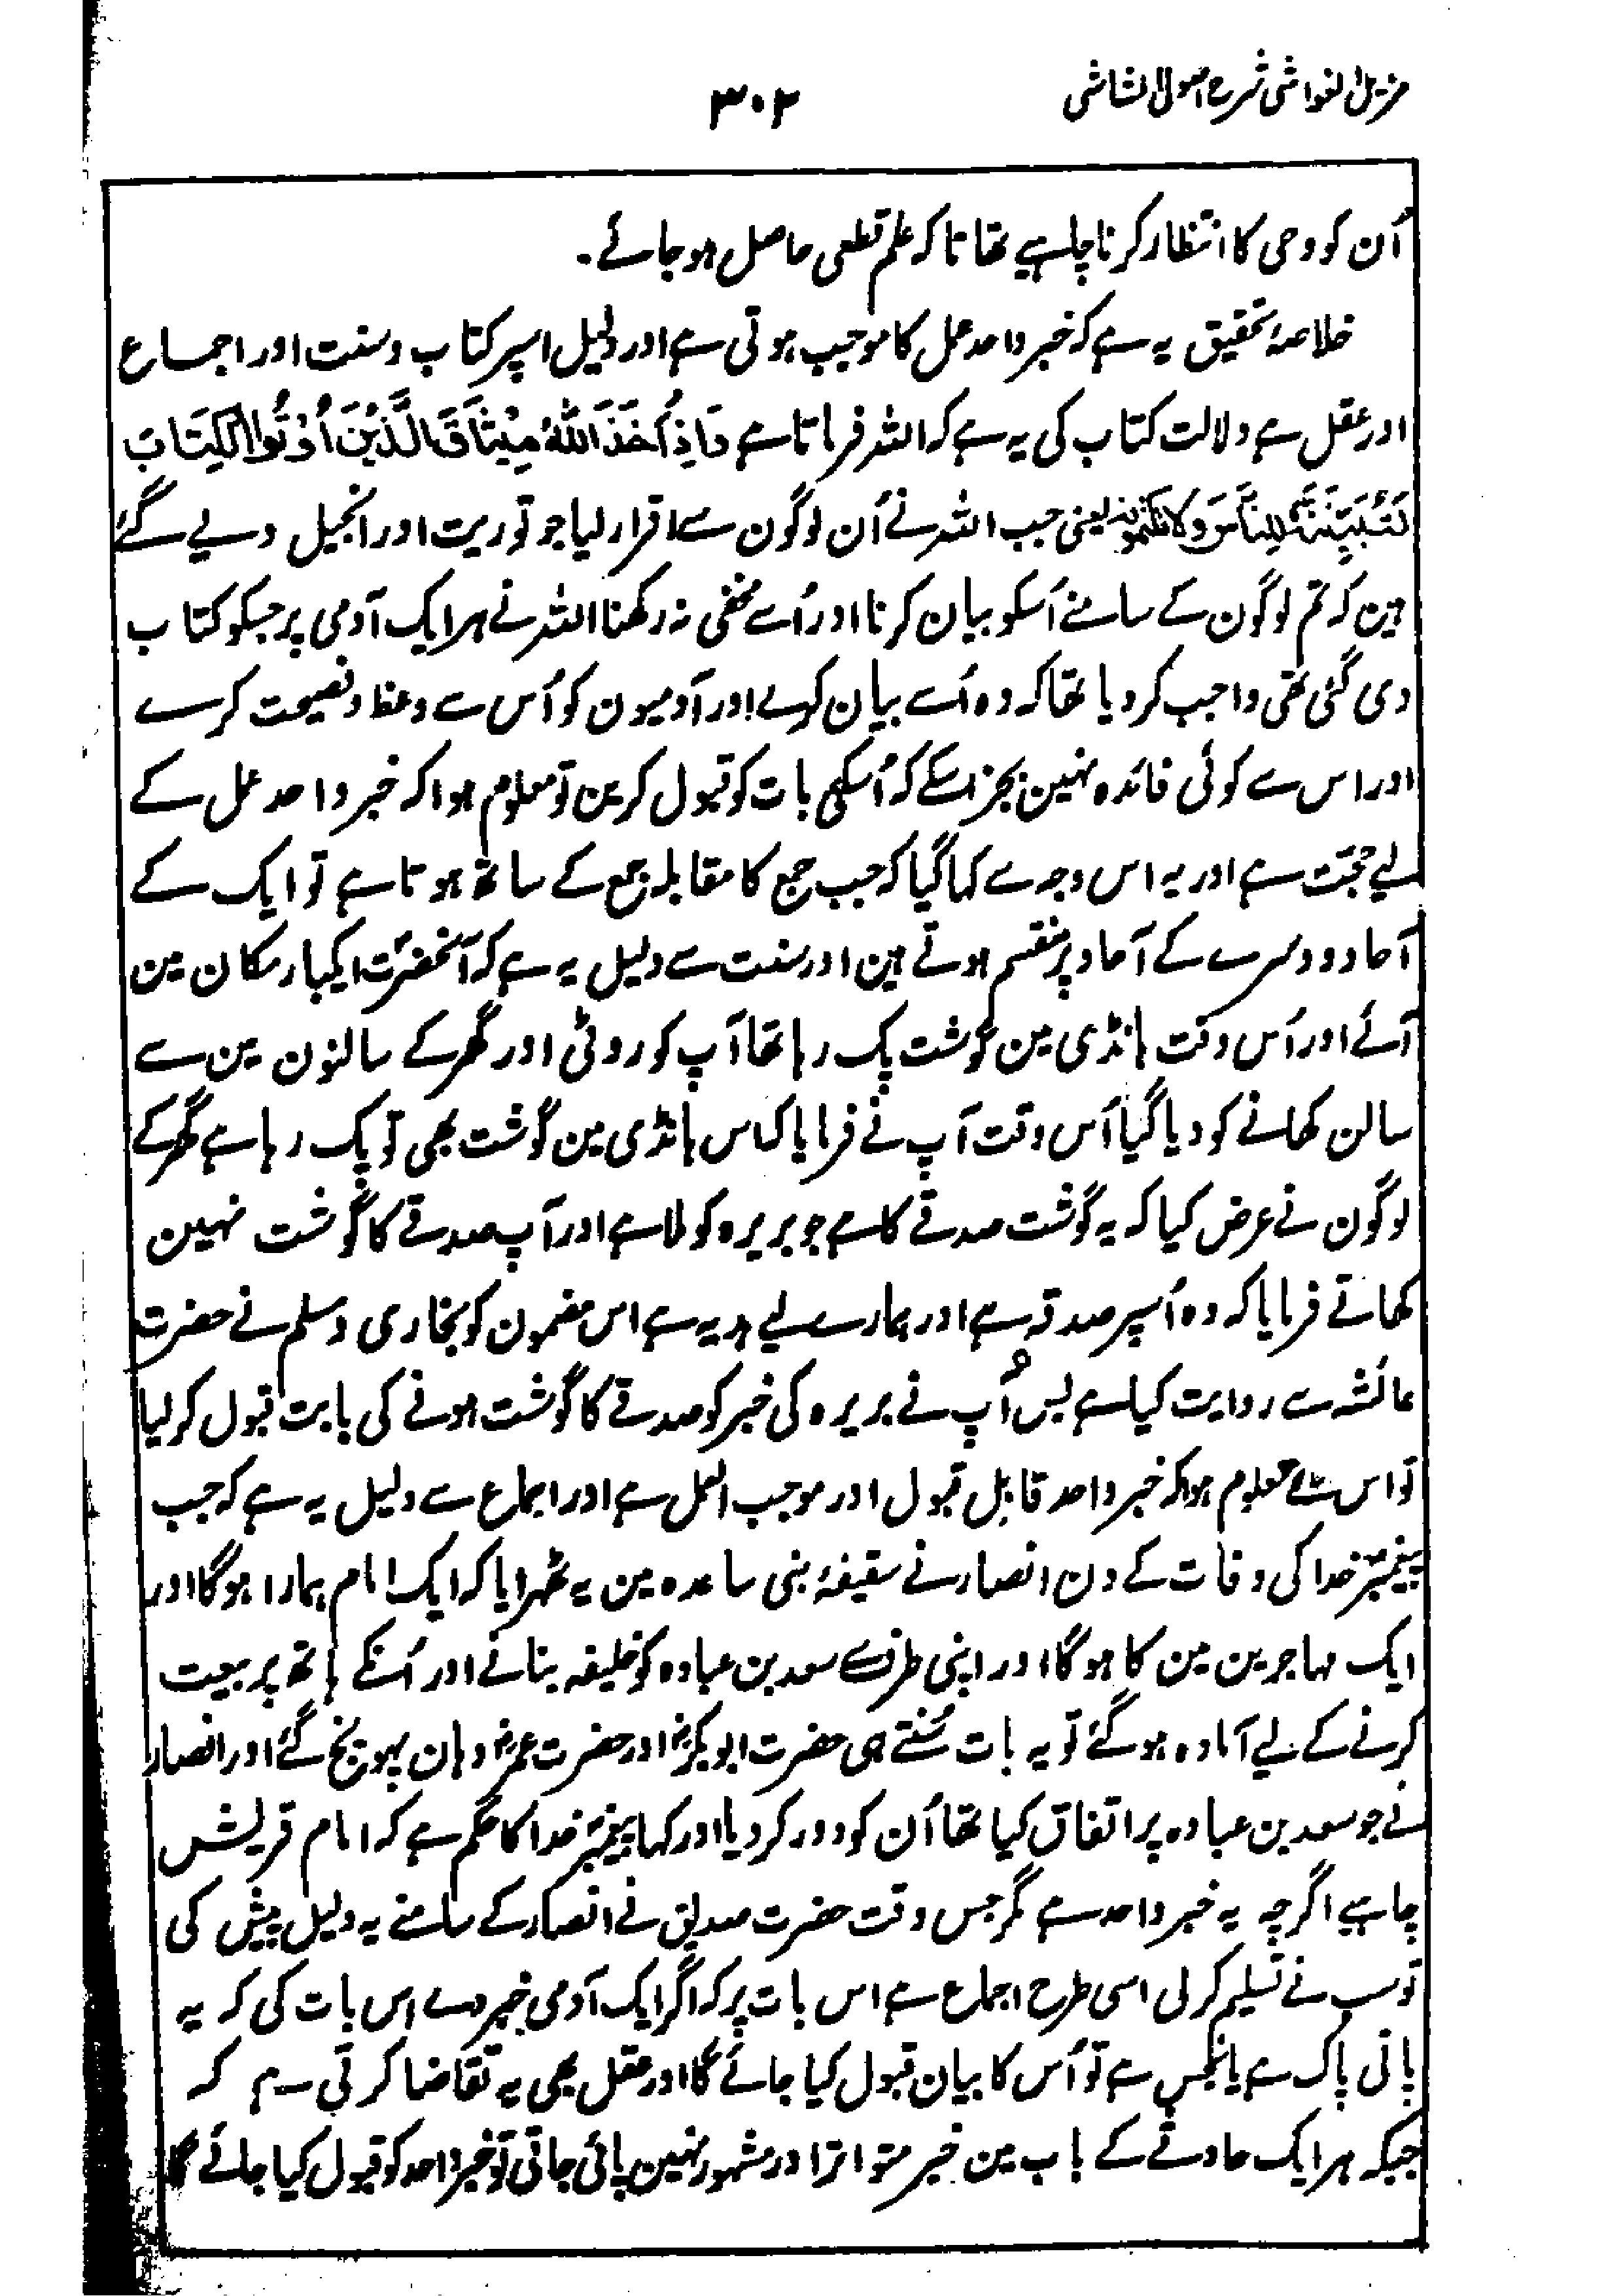 مزیل الغواشی شرح اصول الشاشی
۳۰۲
اُن کو وحی کا انتظار کرنا چاہیے تھا تا کہ علم قطعی حاصل ہو جائے۔
خلاصۂ تحقیق یہ ہے کہ خبر واحد عمل کا موجب ہوتی ہے اور دلیل اسپر کتاب و سنت اور اجماع
اور عقل ہے دلالت کتاب کی یہ ہے کہ اللہ فرماتا ہے وَاِذْ اَخَذَ اللّٰهُ مِيْثَاقَ الَّذِيْنَ اُوْتُوا الْكِتَابَ
لَتُبَيِّنُنَّهٗ لِلنَّاسِ وَلَا تَكْتُمُوْنَهٗ یعنی جب اللہ نے اُن لوگون سے اقرار لیا جو توریت اور انجیل دیے گئے
ہین کہ تم لوگون کے سامنے اُسکو بیان کرنا اور اُسے مخفی نہ رکھنا اللہ نے ہر ایک آدمی پر جسکو کتاب
دی گئی تھی واجب کر دیا تھا کہ وہ اُسے بیان کرے اور آدمیون کو اُس سے وعظ و نصیحت کرے
اور اس سے کوئی فائدہ نہین بجز اسکے کہ اُسکی بات کو قبول کرین تو معلوم ہوا کہ خبر واحد عمل کے
لیے حجت ہے اور یہ اس وجہ سے کہا گیا کہ جب جمع کا مقابلہ جمع کے ساتھ ہوتا ہے تو ایک کے
آحاد دوسرے کے آحاد پر منقسم ہوتے ہین اور سنت سے دلیل یہ ہے کہ آنحضرتؐ ایکبار مکان مین
آئے اور اُس وقت ہانڈی مین گوشت پک رہا تھا آپ کو روٹی اور گھر کے سالنون مین سے
سالن کھانے کو دیا گیا اُس وقت آپ نے فرمایا کہ اس ہانڈی مین گوشت بھی تو پک رہا ہے گھر کے
لوگون نے عرض کیا کہ یہ گوشت صدقے کا ہے جو بریرہ کو ملا ہے اور آپ صدقے کا گوشت نہین
کھاتے فرمایا کہ وہ اُسپر صدقہ ہے اور ہمارے لیے ہدیہ ہے اس مضمون کو بخاری و مسلم نے حضرت
عائشہ سے روایت کیا ہے پس آپ نے بریرہ کی خبر کو صدقے کا گوشت ہونے کی بابت قبول کر لیا
تو اس سے معلوم ہوا کہ خبر واحد قابل قبول اور موجب العمل ہے اور اجماع سے دلیل یہ ہے کہ جب
پیغمبرؐ خدا کی وفات کے دن انصار نے سقیفۂ بنی ساعدہ مین یہ ٹھہرایا کہ ایک امام ہمارا ہوگا اور
ایک مہاجرین مین کا ہوگا اور اپنی طرف سے سعد بن عبادہ کو خلیفہ بنانے اور اُنکے ہاتھ پر بیعت
کرنے کے لیے آمادہ ہو گئے تو یہ بات سُنتے ہی حضرت ابوبکرؓ اور حضرت عمرؓ وہان پہونچ گئے اور انصار
نے جو سعد بن عبادہ پر اتفاق کیا تھا اُن کو دور کر دیا اور کہا پیغمبرؐ خدا کا حکم ہے کہ امام قریش
چاہیے اگرچہ یہ خبر واحد ہے مگر جس وقت حضرت صدیق نے انصار کے سامنے یہ دلیل پیش کی
تو سب نے تسلیم کر لی اسی طرح اجماع ہے اس بات پر کہ اگر ایک آدمی خبر دے اس بات کی کہ یہ
پانی پاک ہے یا نجس ہے تو اُس کا بیان قبول کیا جائے گا اور عقل بھی یہ تقاضا کرتی ہے کہ
جبکہ ہر ایک حادثے کے باب مین خبر متواتر اور مشہور نہین پائی جاتی تو خبر واحد کو قبول کیا جائے گا